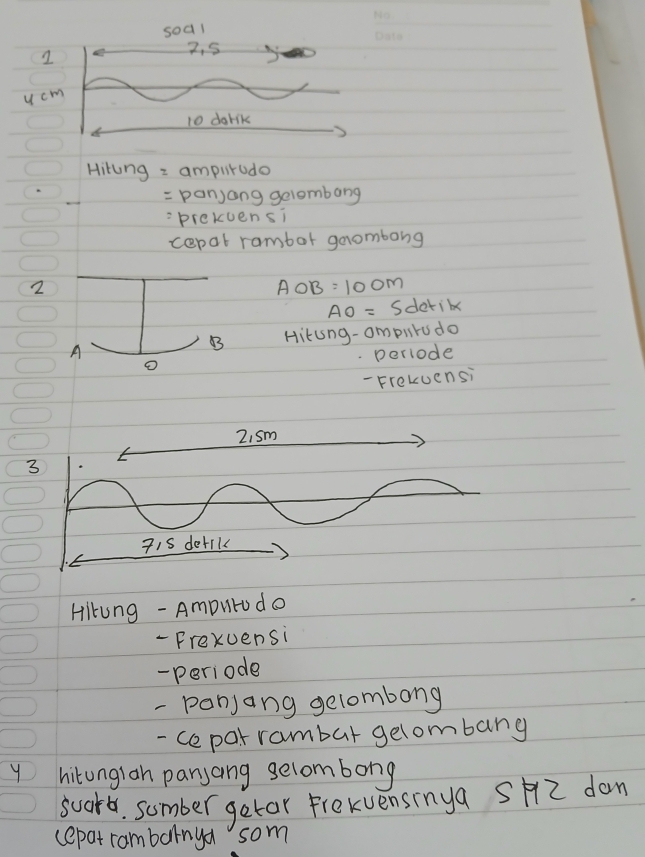 No.
Date
soal
1
7,5
4 cm
10 detik
Hitung = amplitudo
= panjang gelombang
= prekuensi
cepat rambat gelombang
2
AOB = 100m
AO = 5detik
Hitung - amplitudo
. periode
- Frekuensi
A
B
O
2,5m
3
7,5 detik
Hitung - Amplitudo
- Frekuensi
- periode
- panjang gelombang
- cepat rambat gelombang
4 hitunglah panjang gelombang
suara. sumber getar Frekuensinya 5 HZ dan
cepat rambatnya 50m